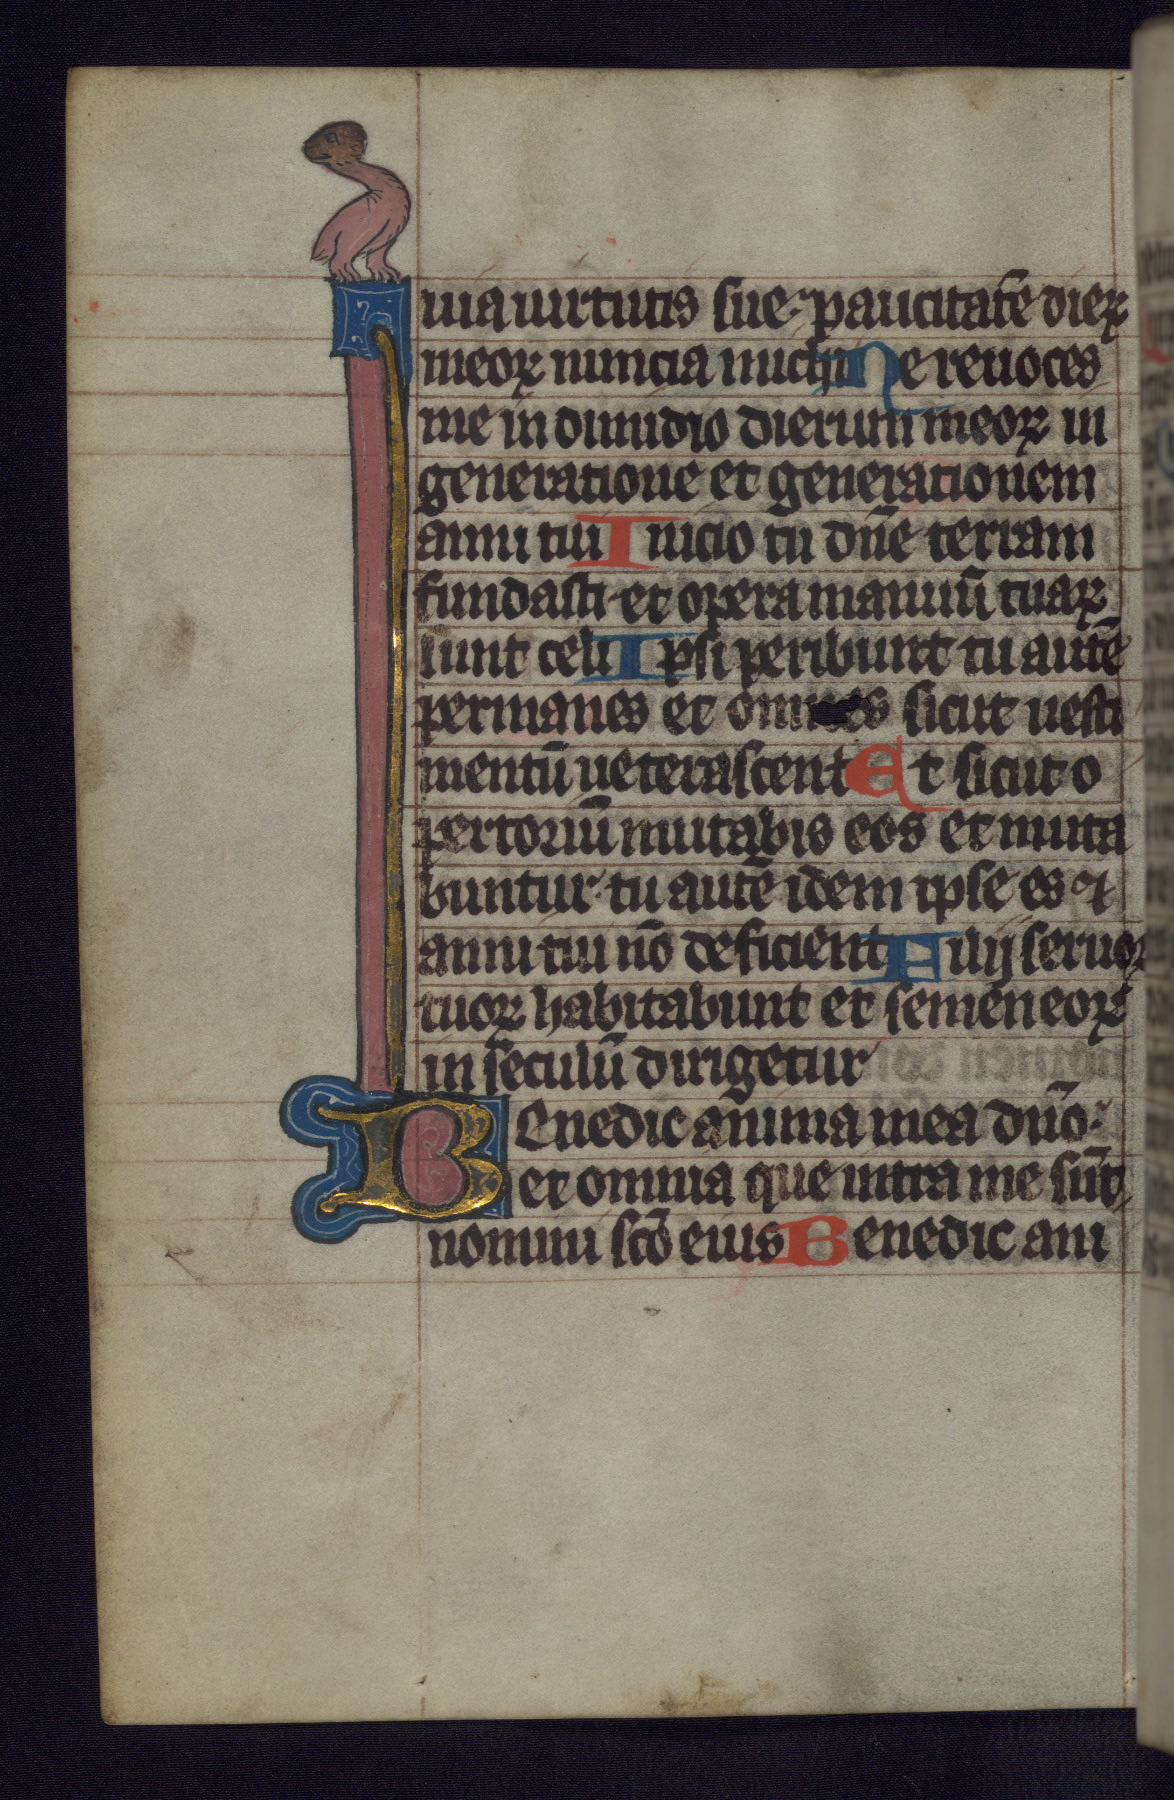 uia uirtutis sue· paucitatē dieꝝ
meoꝝ nuncia michi Ne reuoces
me in dimidio dierum meoꝝ in
generatione et generationem
anni tui Inicio tu dn̄e terram
fundasti· et opera manuū tuaꝝ
sunt celi Ipsi peribunt tu autē
permanes et omnes sicut uesti
mentū ueterascent Et sicut o
pertoriū mutabis eos et muta
buntur· tu autē idem ipse es ⁊
anni tui nō deficient Filij seruoꝝ
tuoꝝ habitabunt et semen eoꝝ
in seculū dirigetur
Benedic anima mea dn̄o·
et omnia que intra me sūt
nomini scō eius Benedic ani